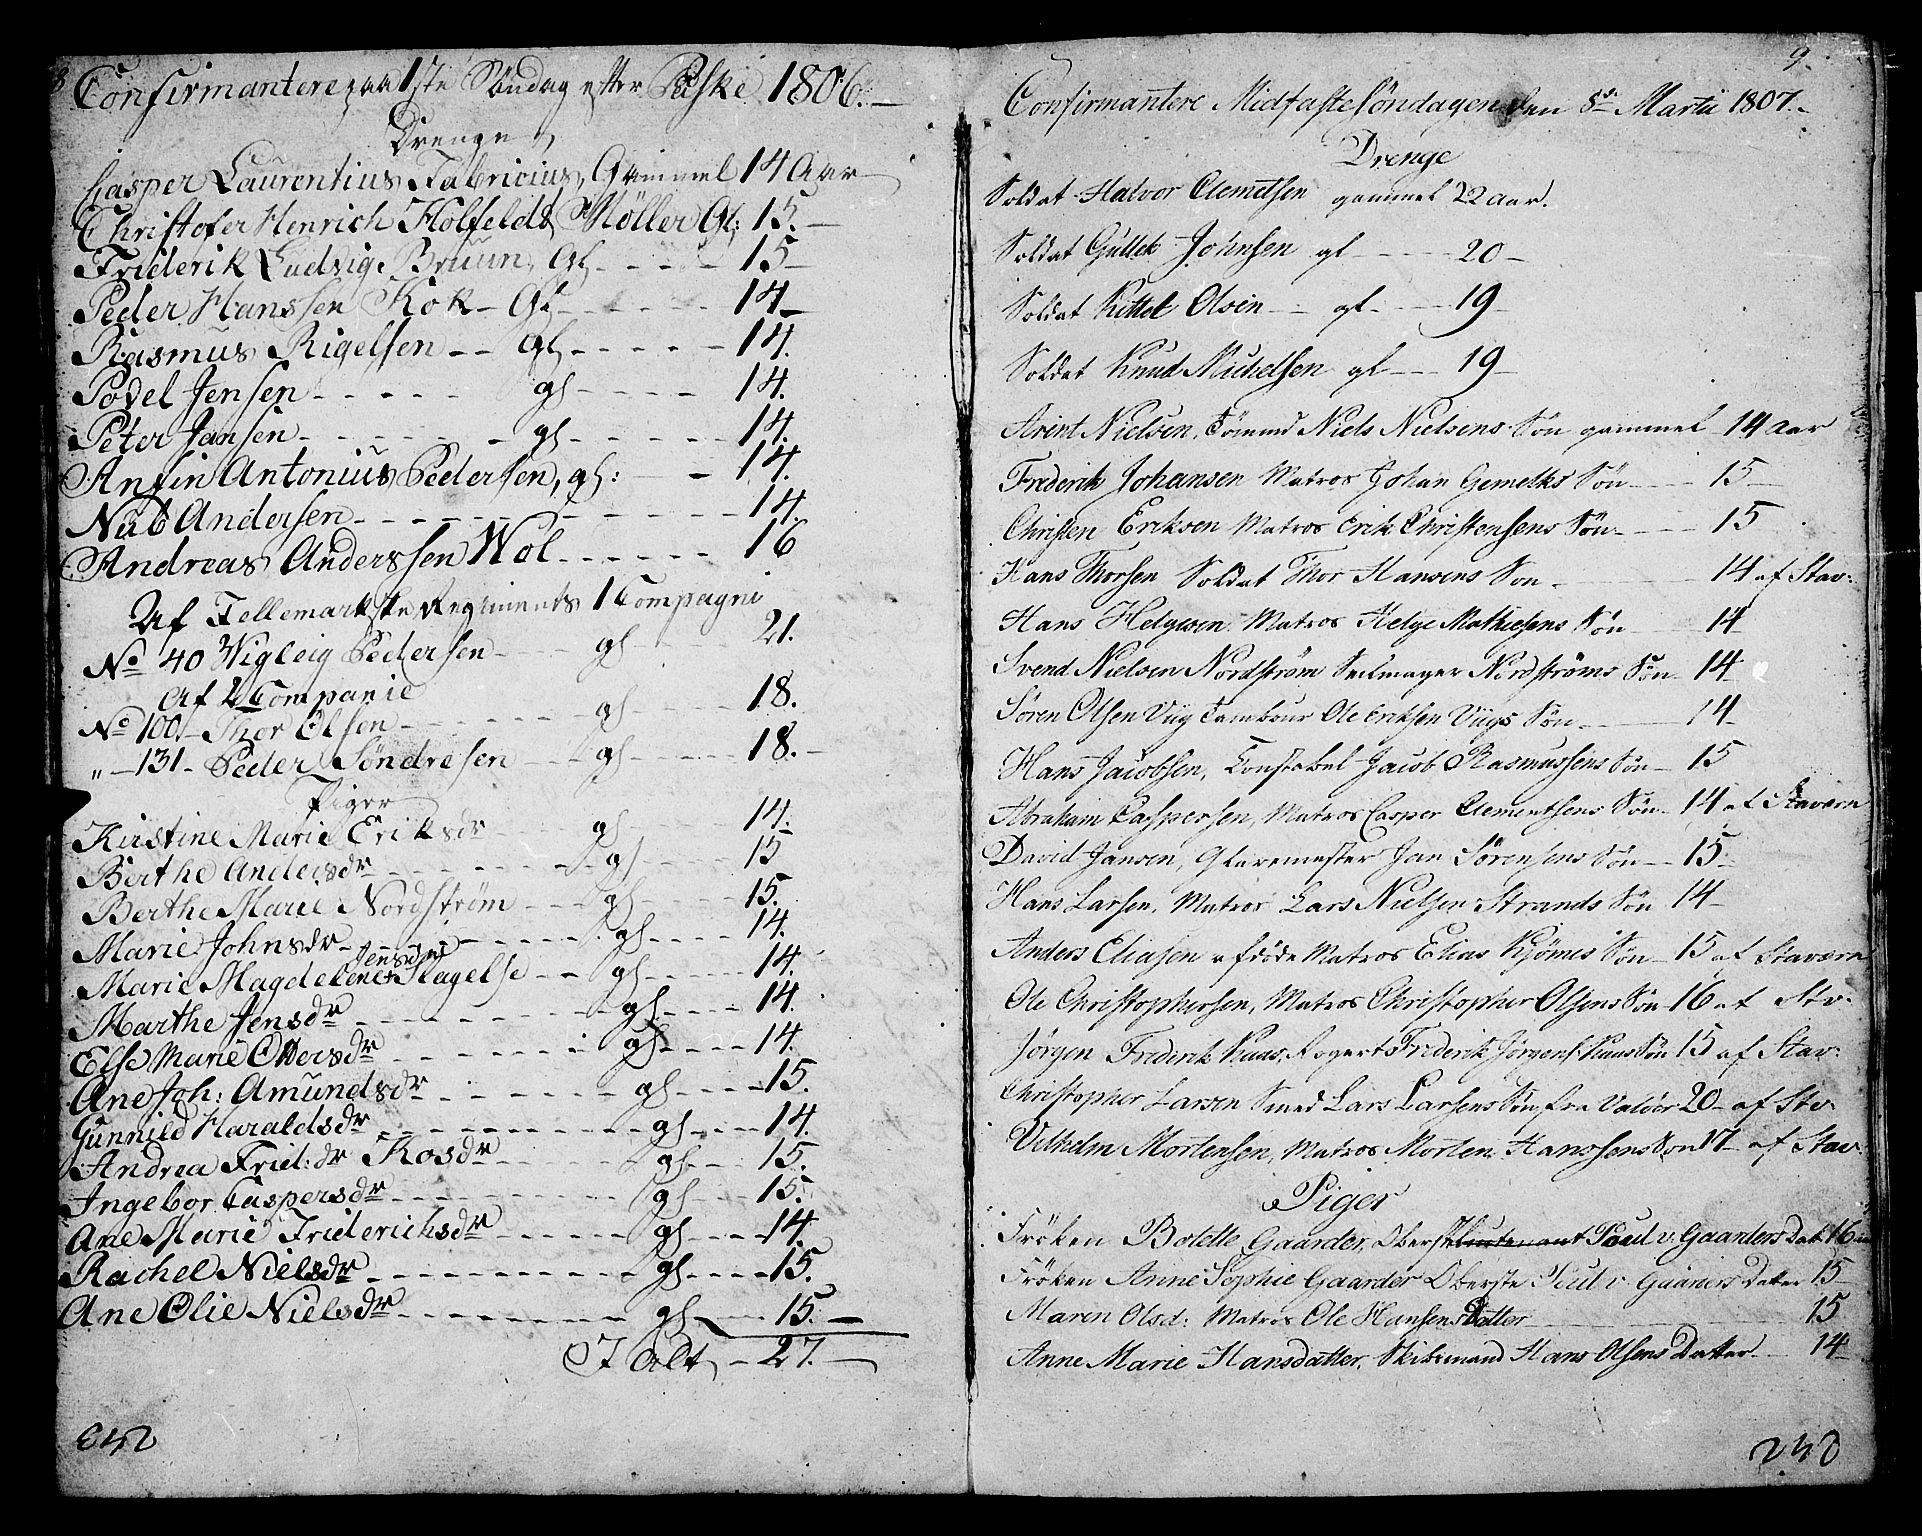 8
Confirmantere paa 1ste Söndag efter Paaske 1806.
Drenge
Casper Laurentius Fabricius, Gammel 14 Aar
Christofer Henrich Holfeldt Møller Gl: 15.
Friderik Ludvig Bruun, Gl 15
Peder Hanssen Kok Gl 14
Rasmus Rigelsen gl 14.
Povel Jensen gl 14.
Peter Jansen gl 14.
Anfin Antonius Pedersen, gl: 14.
Nub Andersen 14.
Andreas Anderssen Wol 16
Af Tellemarkske Regiments 1 Compagni
No 40 Wigleig Pedersen gl 21.
Af 2 Companie
No 100 Thor Olsen gl 18.
" 131 Peder Söndresen gl 18.
Piger
Kirstine Marie Eriksdr gl 14.
Berthe Andersdr gl 15
Berthe Marie Nordstrøm gl 15.
Marie Johnsdr gl 14.
Jensdr
Marie Magdelene Hagelse gl 14.
Marthe Jensdr gl 14.
Else Marie Ottersdr gl 14.
Ane Joh: Amundsdr gl 15.
Gunnild Haraldsdr gl 14.
Andrea Frid:dr Kosdr gl 15.
Ingebor Caspersdr gl 15.
Ane Marie Friderichsdr gl 14.
Rachel Nielsdr gl 15.
Ane Olie Nielsdr gl 15.
I Alt 27.
9.
Confirmantere Midfastesöndagen den 8de Martii 1807.
Drenge
Soldat Halvor Clemetsen gammel 22 aar.
Soldat Gullek Johnsen gl 20
Soldat Kittel Olsen gl 19
Soldat Knud Michelsen gl 19
Arent Nielsen, Tömmd Niels Nielsens Sön gammel 14 aar
Frederik Johansen Matros Johan Gemelks Sön 15
Christen Eriksen Matros Erik Christensens Sön 15
Hans Thorsen Soldat Thor Hansens Sön 14 af Stav:
Hans Helgesen Matros Helge Mathiesens Sön 14
Svend Nielsen Nordström Seilmager Nordströms Sön 14
Sören Olsen Viig Tambour Ole Eriksen Viigs Sön 14
Hans Jacobsen, Constabel Jacob Rasmussens Sön 15
Abraham Caspersen, Matros Casper Clementsens Sön 14 af Stavern
David Jansen, Glarmester Jan Sörensens Sön 15
Hans Larsen, Matros Lars Nielsen Strands Sön 14
Anders Eliasen afdöde Matros Elias Kjömes Sön 15 af Stavern
Ole Christophersen, Matros Christopher Olsens Sön 16 af Stv.
Jörgen Frederik Kuus, Rogert Frederik Jörgens. Kuus Sön 15 af Stav:
Christopher Larsen Smed Lars Larsens Sön fra Valöer 20 af Stv.
Vilhelm Mortensen, Matros Morten Hanssens Sön 17 af Stav:
Piger
Fröken Bolette Gaarder, Oberstlieutenant Poul v. Gaarders Dat. 16
Fröken Anne Sophie Gaarder Oberste Poul v. Gaarders Datter 15
Maren Olsd: Matros Ole Hansens Datter 15
Anne Marie Hansdatter, Skibsmand Hans Olsens Datter 14